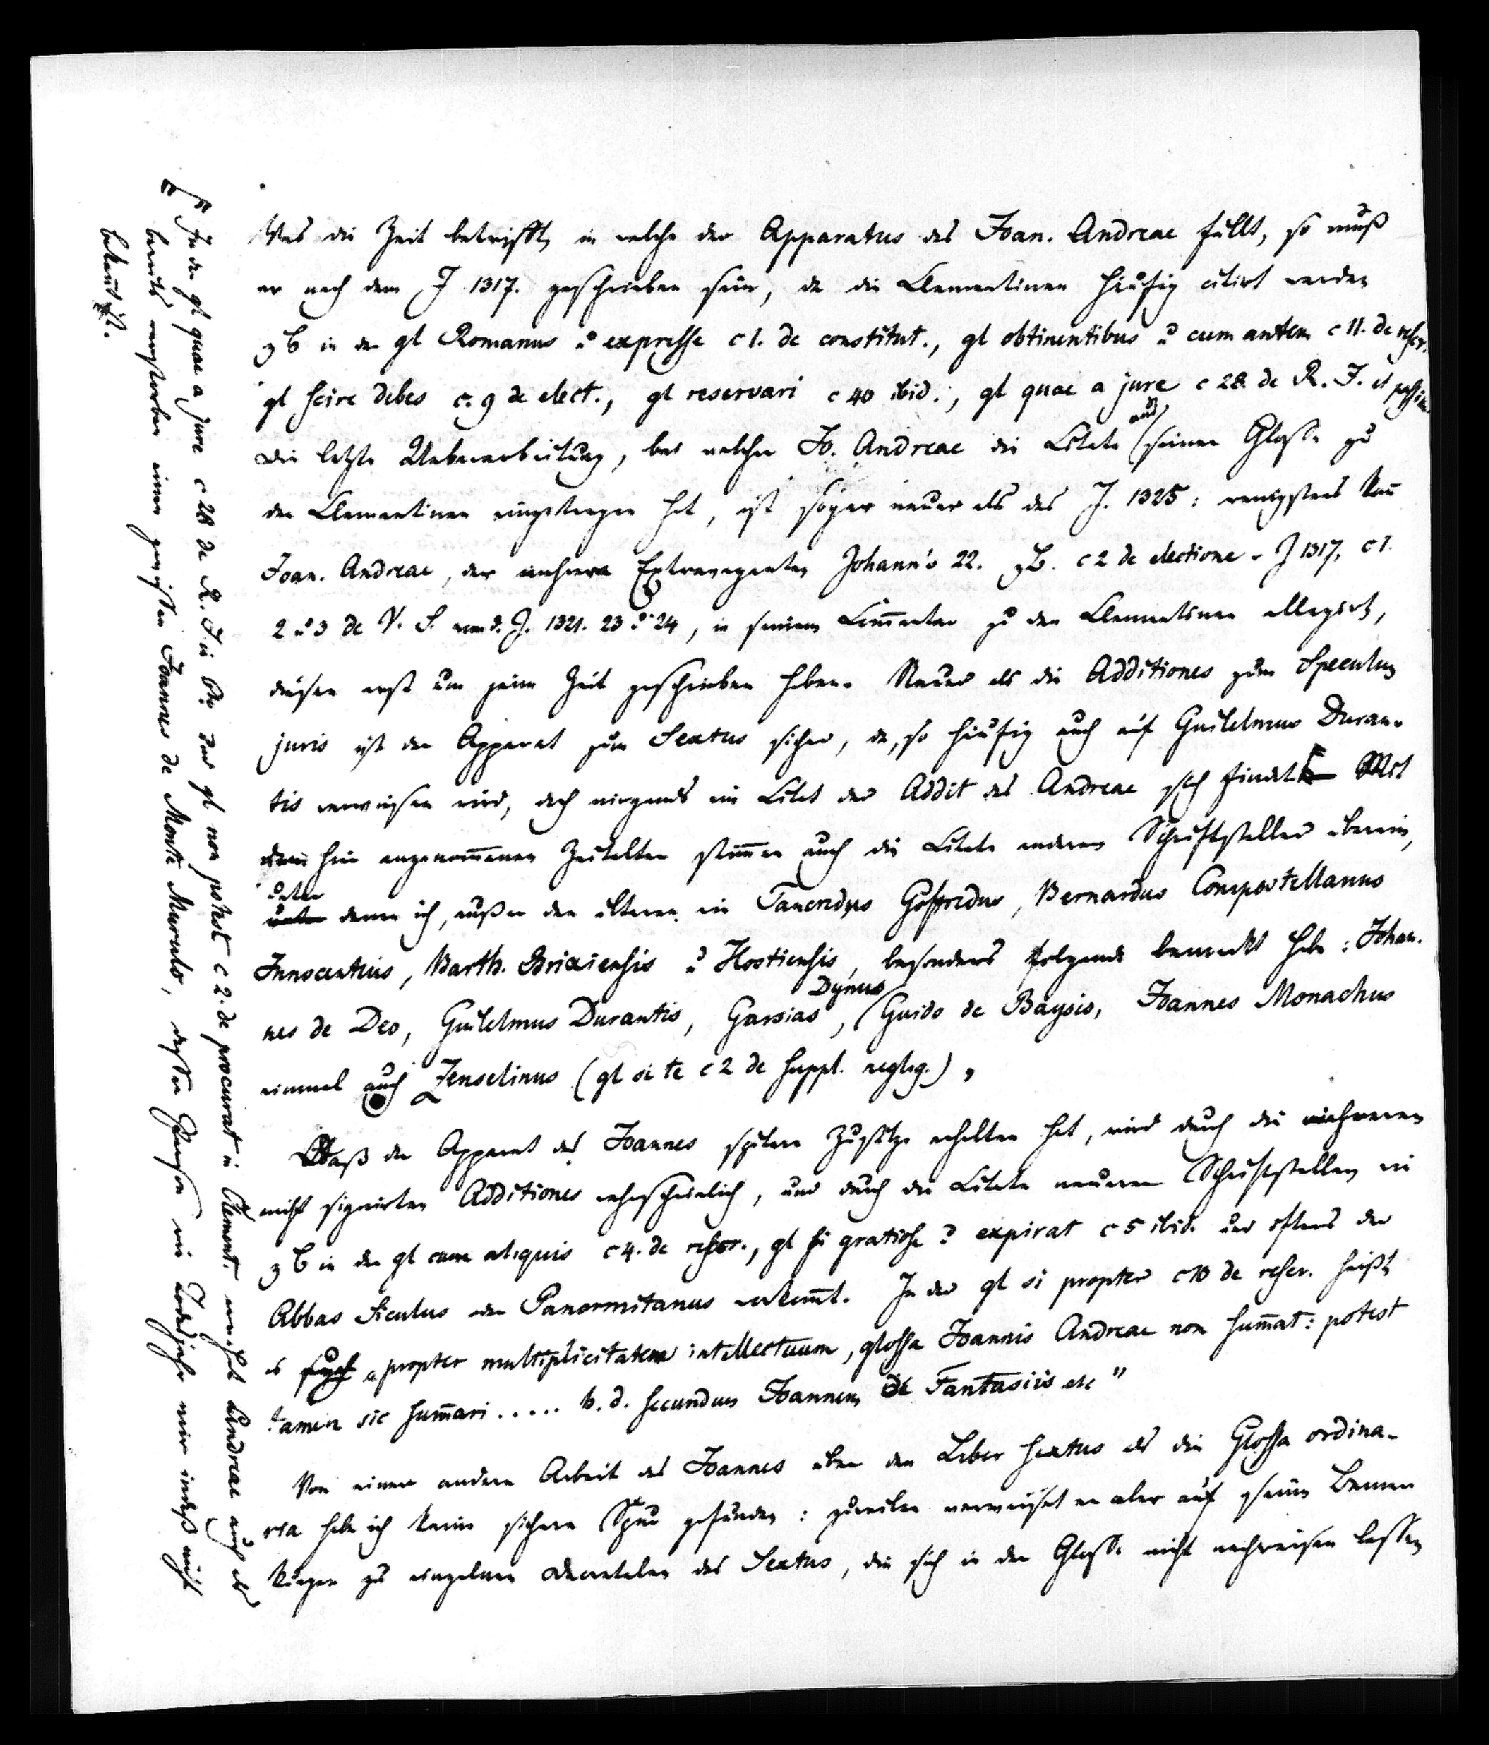 Was die Zeit betrifft, in welche der Apparatus des Joan. Andreae fällt, so muß
er nach dem J 1317. geschrieben sein, da die Clementinen häufig citirt werden
z B in der gl Romanus u expresse c 1. de constitut., gl obtinentibus u cum autem c 11. de rescr.
gl scire debes c. 9 de elect., gl reservari c 40 ibid., gl quae a jure c 28. de R. J. et passim
die letzte Ueberarbeitung, bei welcher Jo. Andreae die Citate aus seiner Glosse zu
den Clementinen eingetragen hat, ist sogar neuer als das J. 1325: wenigstens kan̄
Joan. Andreae, der mehrere Extravaganten Johann's 22. z B. c 2 de electione v J 1317, c 1.
2 u 3 de V. S. von d. J. 1321. 23 u 24, in seinem Com̄entar zu den Clementinen allegirt,
diesen erst um jene Zeit geschrieben haben. Neuer als die Additiones zum Speculum
juris ist der Apparat zum Sextus sicher, da, so häufig auch auf Guilelmus Duran-
tis verwiesen wird, doch nirgends ein Citat der Addit des Andreae sich findet. Mit
dem hier angenom̄enen Zeitalter stim̄en auch die Citate anderer Schriftsteller überein,
unter denen ich, außer den älteren, wie Tancredus Goffredus, Bernardus Compostellanus
Innocentius, Barth. Brixiensis u Hostiensis, besonders folgende bemerkt habe: Johan-
nes de Deo, Guilelmus Durantis, Garsias, Dynus, Guido de Baysio, Joannes Monachus
einmal auch Zenselinus (gl si te c 2 de suppl. neglig.),
Daß der Apparat des Joannes spätere Zusätze erhalten hat, wird durch die mehreren
nicht signirten Additiones wahrscheinlich, und durch die Citate neuerer Schriftsteller wie
z B in der gl cum aliquis c 4. de rescr., gl si gratiose u expirat c 5 ibid. und öfters der
Abbas Siculus oder Panormitanus vorkom̄t. In der gl si propter c 10 de rescr. heißt
es „propter multiplicitatem intellectuum, glossa Joannis Andreae non sum̄at: potest
tamen sic sum̄ari ..... h. d. secundum Joannem de Fantasiis etc"
Von einer andern Arbeit des Joannes über den Liber Sextus als die Glossa ordina-
ria habe ich keine sichere Spur gefunden: zuweilen verweiset er aber auf seine Bemer-
kungen zu einzelnen Decretalen des Sextus, die sich in der Glosse nicht nachweisen lassen
In der gl quae a jure c 28 de R. J. in 6to und gl non potest c 2. de procurat in Clement. Andreae auch als
bereits verstorben einen gewissen Joannes de Monte Murulo, dessen Todesjahr mir indeß nicht
bekan̄t ist.